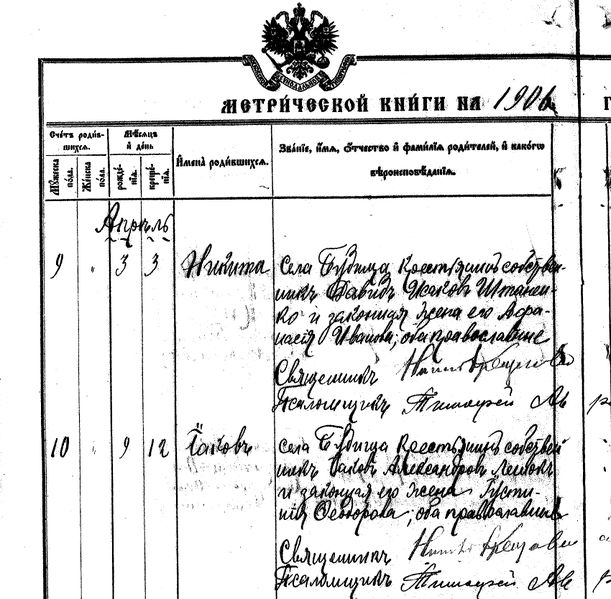 МЕТРИ́ЧЕСКОЙ КНИ́ГИ НА 1906
Счетъ роди́в-
шихся.
Мѣсяцъ
и день
Имена̀ роди́вшихся.
Зва́ніе, и́мя, о́тчество и фами́лія роди́телей, и како́гѡ
вѣроисповѣ́данія.
Му́жеска
по́ла.
Же́нска
по́ла.
рожде́-
нія.
креще́-
нія.
Апрѣль
9 " 3 3 Никита
Села Будища крестьянинъ собствен-
никъ Давидъ Іаковъ
и законная жена его Афа-
насія Иванова; оба православные
Священникъ
Псаломщикъ Тимофей
10 " 9 12 Іаковъ
Села Будища крестьянинъ собствен-
никъ Іаковъ Александровъ
и законная его жена Іусти-
нія Ѳеодорова; оба православные
Священникъ
Псаломщикъ Тимофей